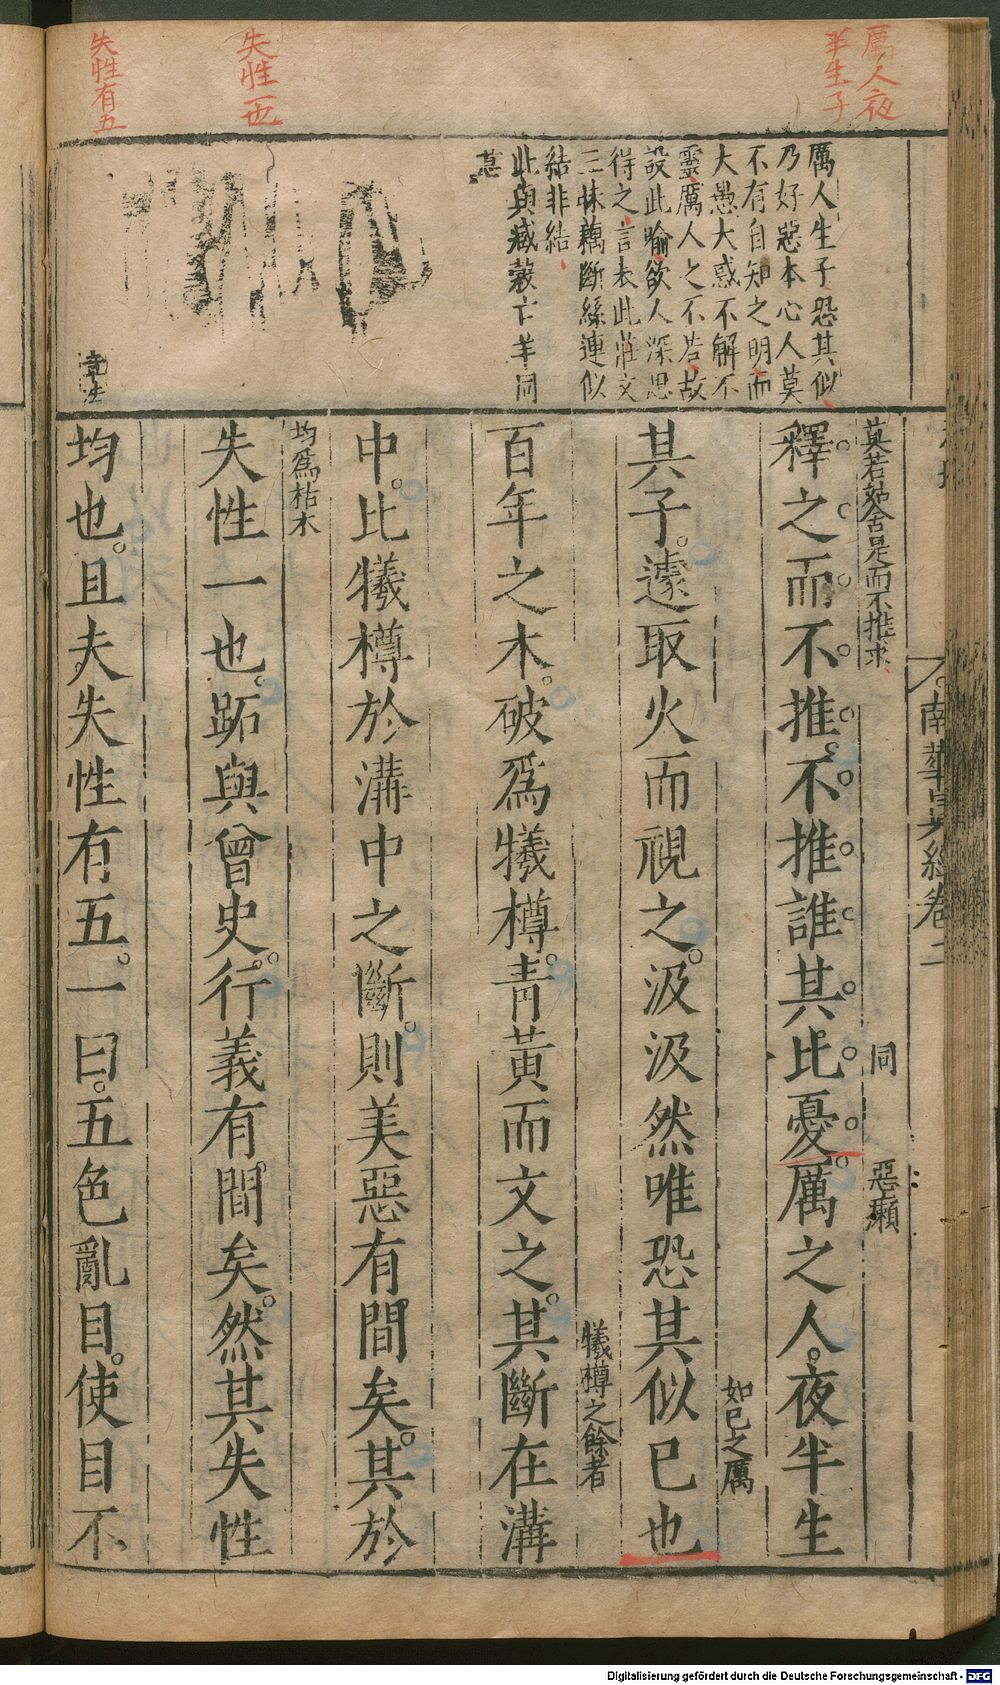 厲人夜
半生子
失性一也
失性有五
厲人生子恐其似
乃好惡本心人莫
不有自知之明而
大愚大惑不解不
靈厲人之不若故
設此喻欲人深思
得之言表此莊文
三昧藕斷絲連似
結非結
此與臧榖亡羊同
意
章法
南華真經卷二
莫若姑舍是而不推求
同
惡癩
釋之而不推不推誰其比憂厲之人夜半生
如已之厲
其子遽取火而視之汲汲然唯恐其似已也
犧樽之餘者
百年之木破爲犧樽青黃而文之其斷在溝
中比犧樽於溝中之斷則美惡有間矣其於
均爲枯木
失性一也跖與曾史行義有間矣然其失性
均也且夫失性有五一曰五色亂目使目不
Digitalisierung gefördert durch die Deutsche Forschungsgemeinschaft - DFG